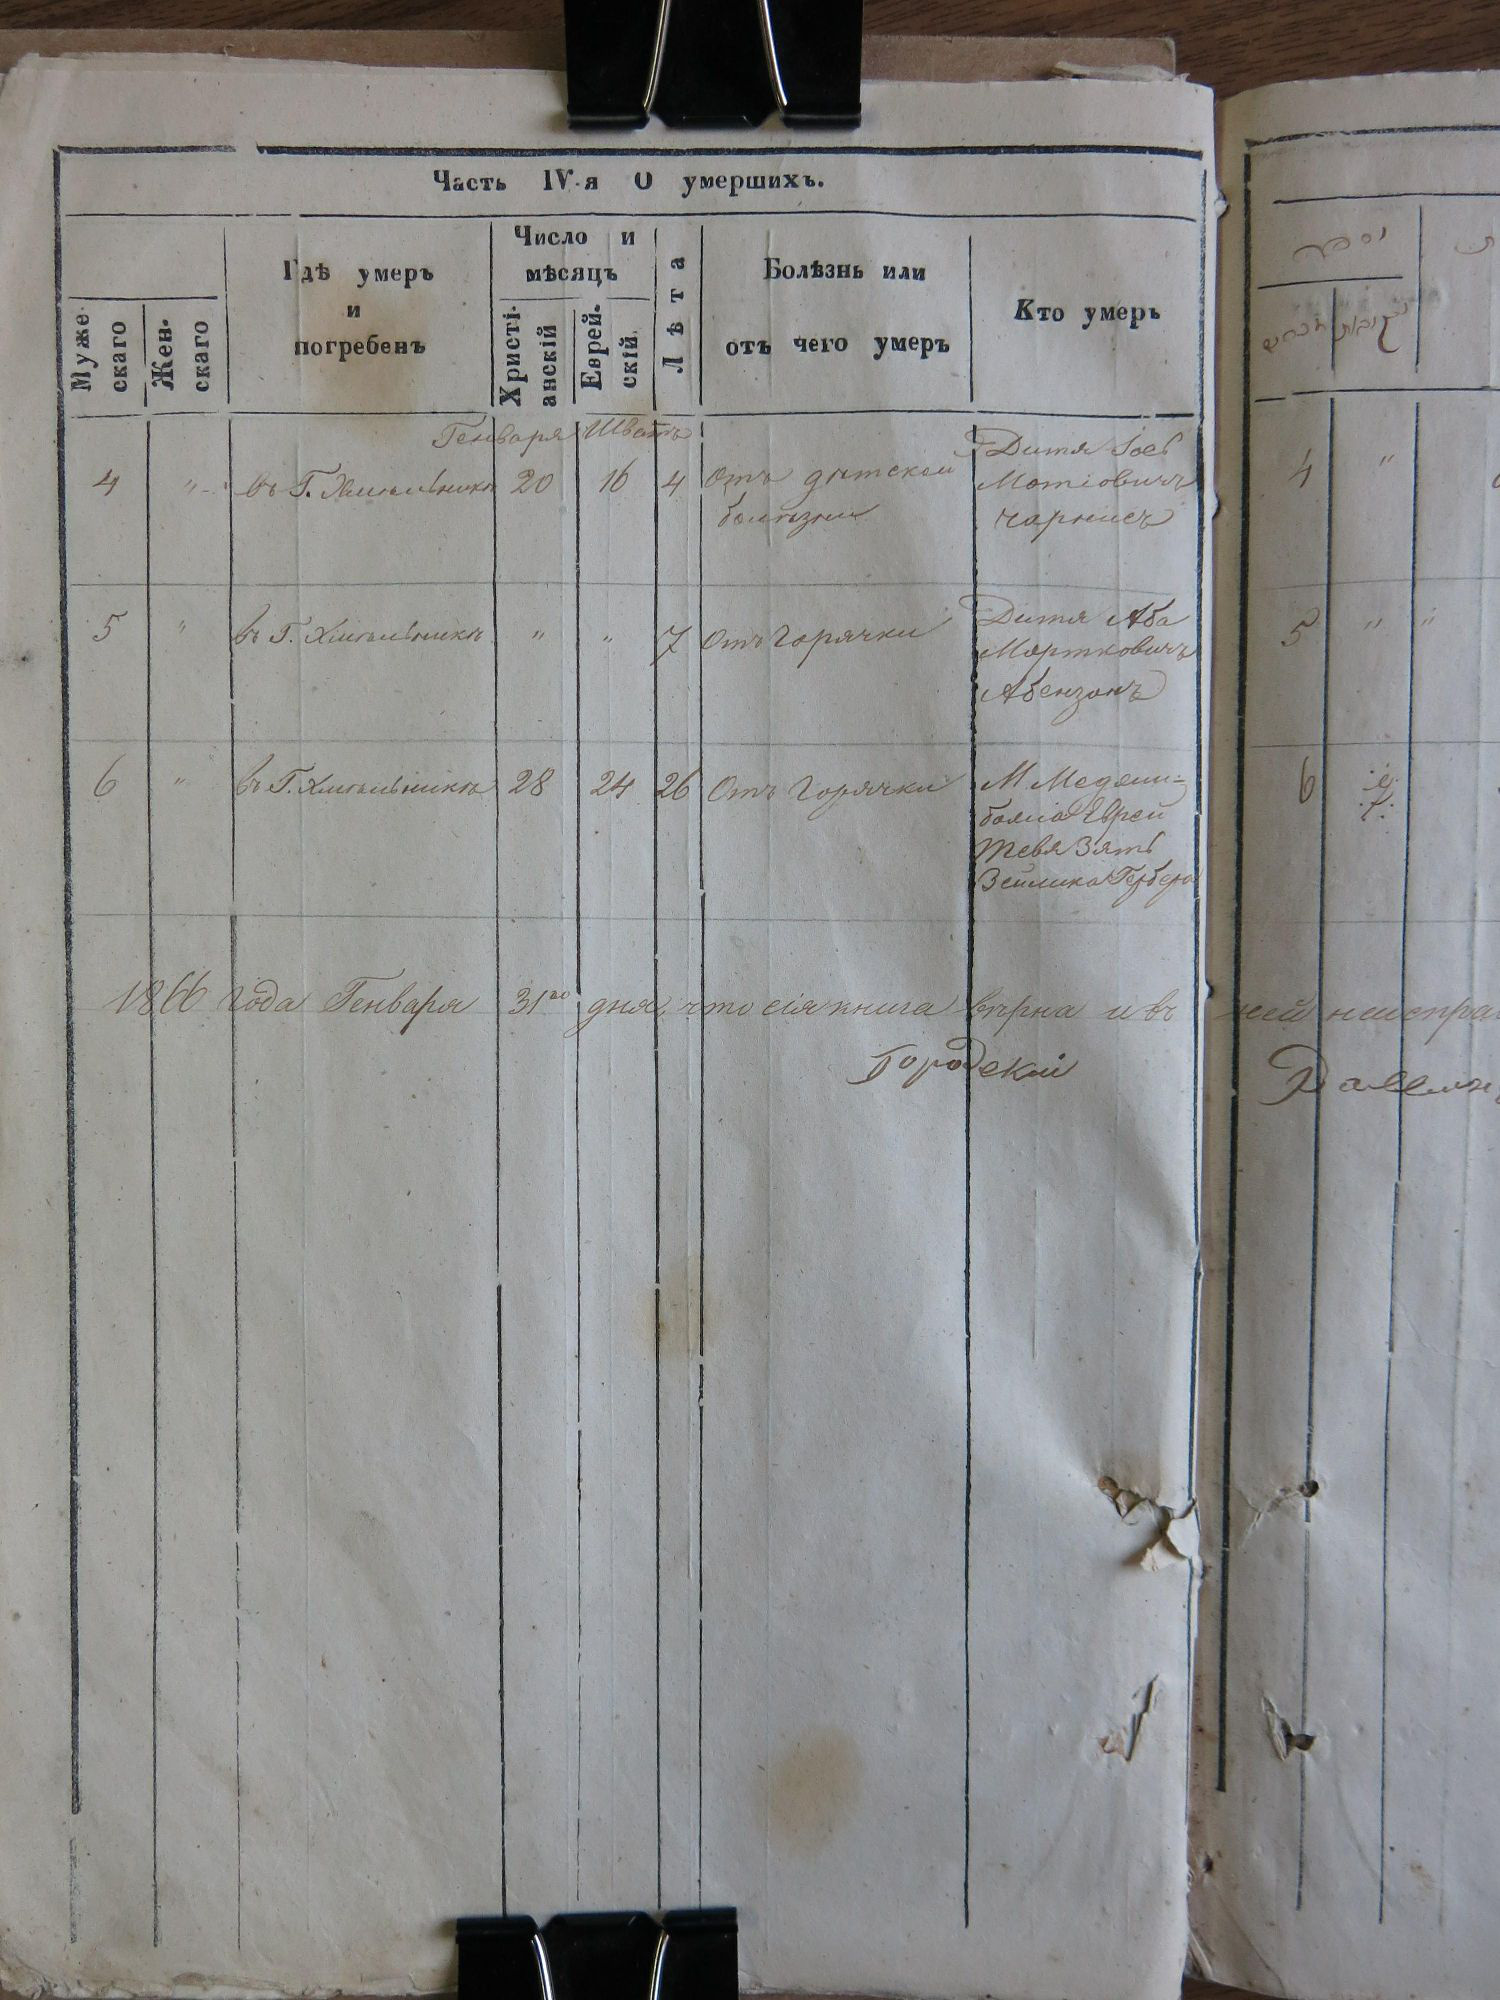 Часть IV-я О умершихъ.
Муже-
скаго
Жен-
скаго
Гдѣ умеръ
и
погребенъ
Число и
мѣсяцъ
Христі-
анскій
Еврей-
скій
Лѣта
Болѣзнь или
отъ чего умеръ
Кто умеръ
Генваря Шватъ
4 " въ Г. Хмѣльникѣ 20 16 4 Отъ дѣтской
болѣзни
Дитя
Мотіовичъ
5 " въ Г. Хмѣльникѣ " " 7 Отъ Горячки
Дитя Аба
Мортковичъ
Абензонъ
6 " въ Г. Хмѣльникѣ 28 24 26 Отъ Горячки
М Меджи-
божа Еврей
Тевя Зять
Зейлика Гербера
1866 года Генваря 31го дня, что сія книга вѣрна и въ ней
Городской
4 "
5 " "
6